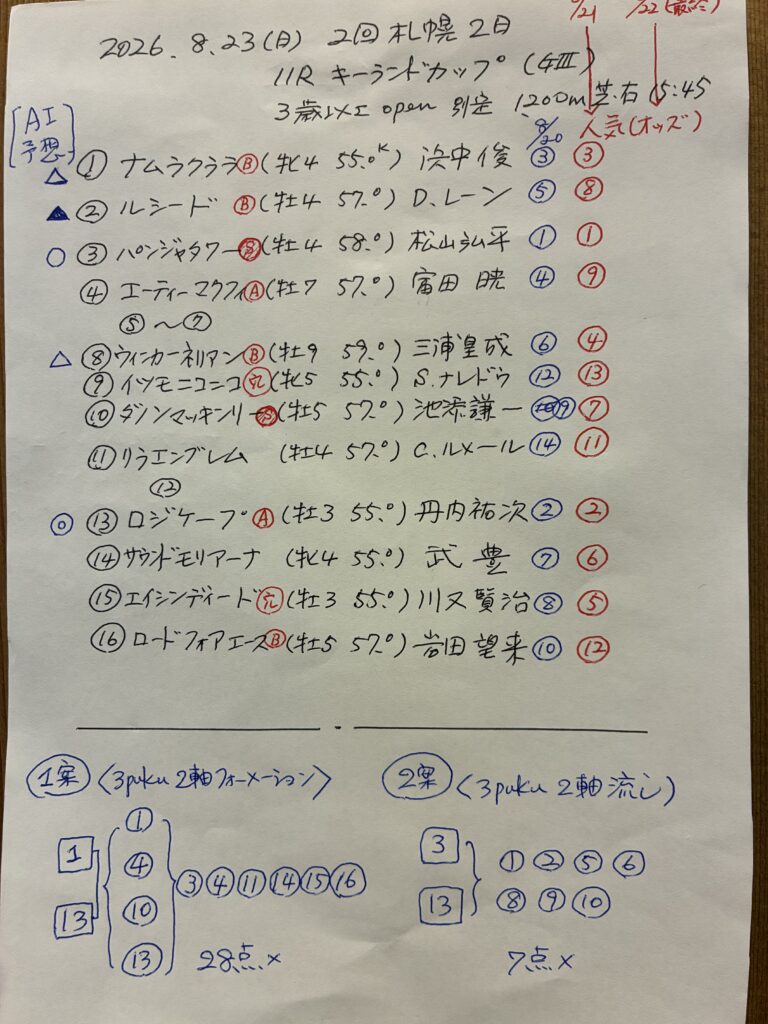 8/21 8/22(最終)
2026.8.23(日) 2回札幌2日
11R キーランドカップ (GⅢ)
3歳以上 open 別定 1,200m芝・右 15:45
[AI予想] 8/20 人気(オッズ)
△ ① ナムラクララ Ⓑ (牝4 55.0K) 浜中俊 ③ ③
▲ ② ルシード Ⓑ (牡4 57.0) D.レーン ⑤ ⑧
○ ③ パンジャタワー Ⓢ (牡4 58.0) 松山弘平 ① ①
④ エーティーマクフィ Ⓐ (牡7 57.0) 富田暁 ④ ⑨
⑤〜⑦
△ ⑧ ウインカーネリアン Ⓑ (牡9 59.0) 三浦皇成 ⑥ ④
⑨ イツモニコニコ 穴 (牝5 55.0) S.ナレドゥ ⑫ ⑬
⑩ ダノンマッキンリー Ⓢ (牡5 57.0) 池添謙一 ⑨ ⑦
⑪ リラエンブレム (牡4 57.0) C.ルメール ⑭ ⑪
⑫
◎ ⑬ ロジケープ Ⓐ (牡3 55.0) 丹内祐次 ② ②
⑭ サウンドモリアーナ (牝4 55.0) 武豊 ⑦ ⑥
⑮ エイシンディード 穴 (牡3 55.0) 川又賢治 ⑧ ⑤
⑯ ロードフォアエース Ⓑ (牡5 57.0) 岩田望来 ⑩ ⑫
1案 〈3puku 2軸フォーメーション〉
1 13
① ④ ⑩ ⑬
③ ④ ⑪ ⑭ ⑮ ⑯
28点×
2案 〈3puku 2軸流し〉
3 13
① ② ⑤ ⑥
⑧ ⑨ ⑩
7点×